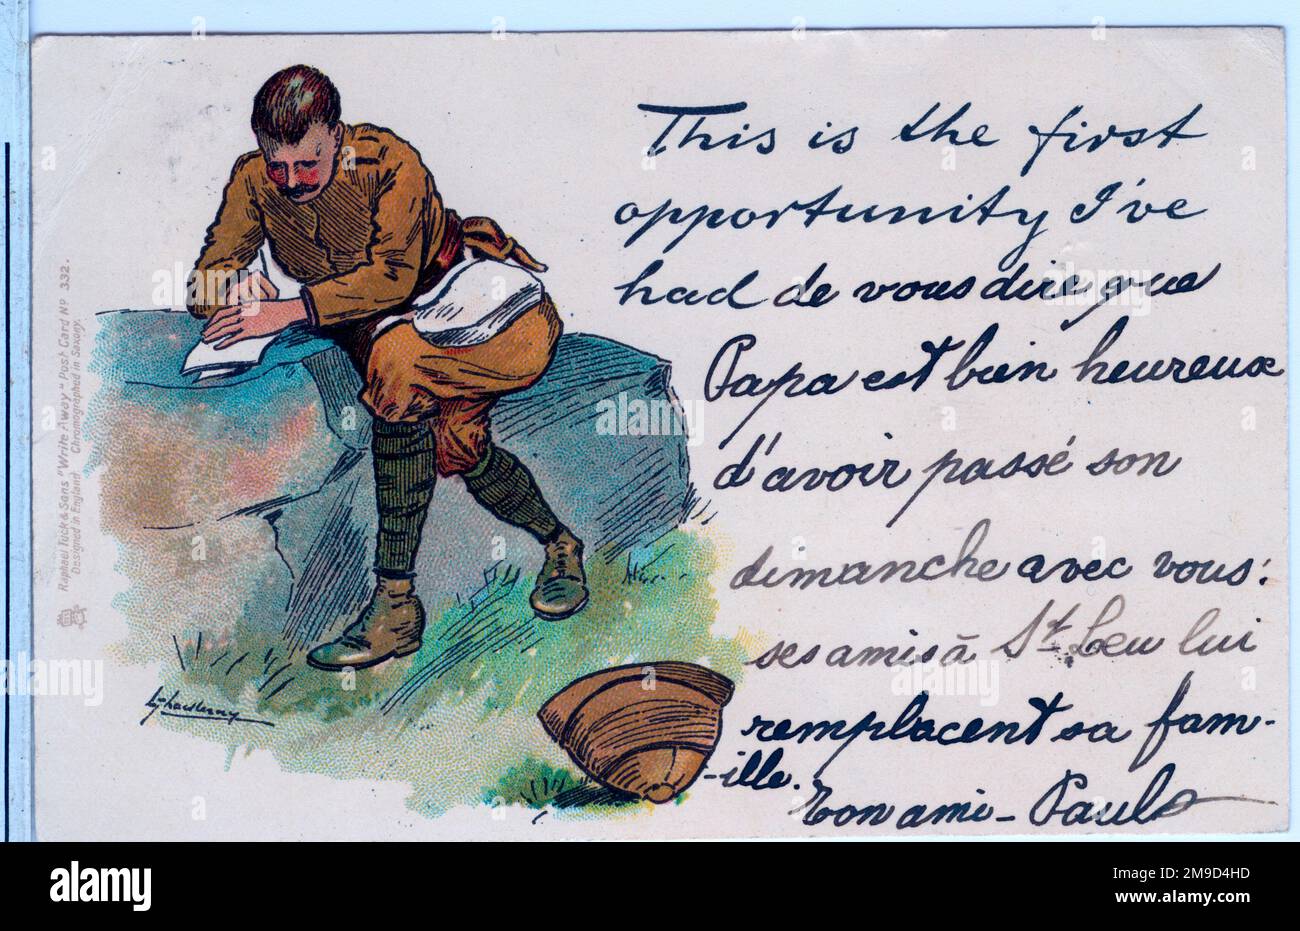 This is the first
opportunity I've
had de vous dire que
Papa est bien heureux
d'avoir passé son
dimanche avec vous:
ses amis à St. Leu lui
remplacent sa fam-
-ille.
Ton ami - Paul
Raphael Tuck & Sons "Write Away" Post Card Nº 332.
Designed in England Chromographed in Saxony.
alamy
Image ID: 2M9D4HD
www.alamy.com